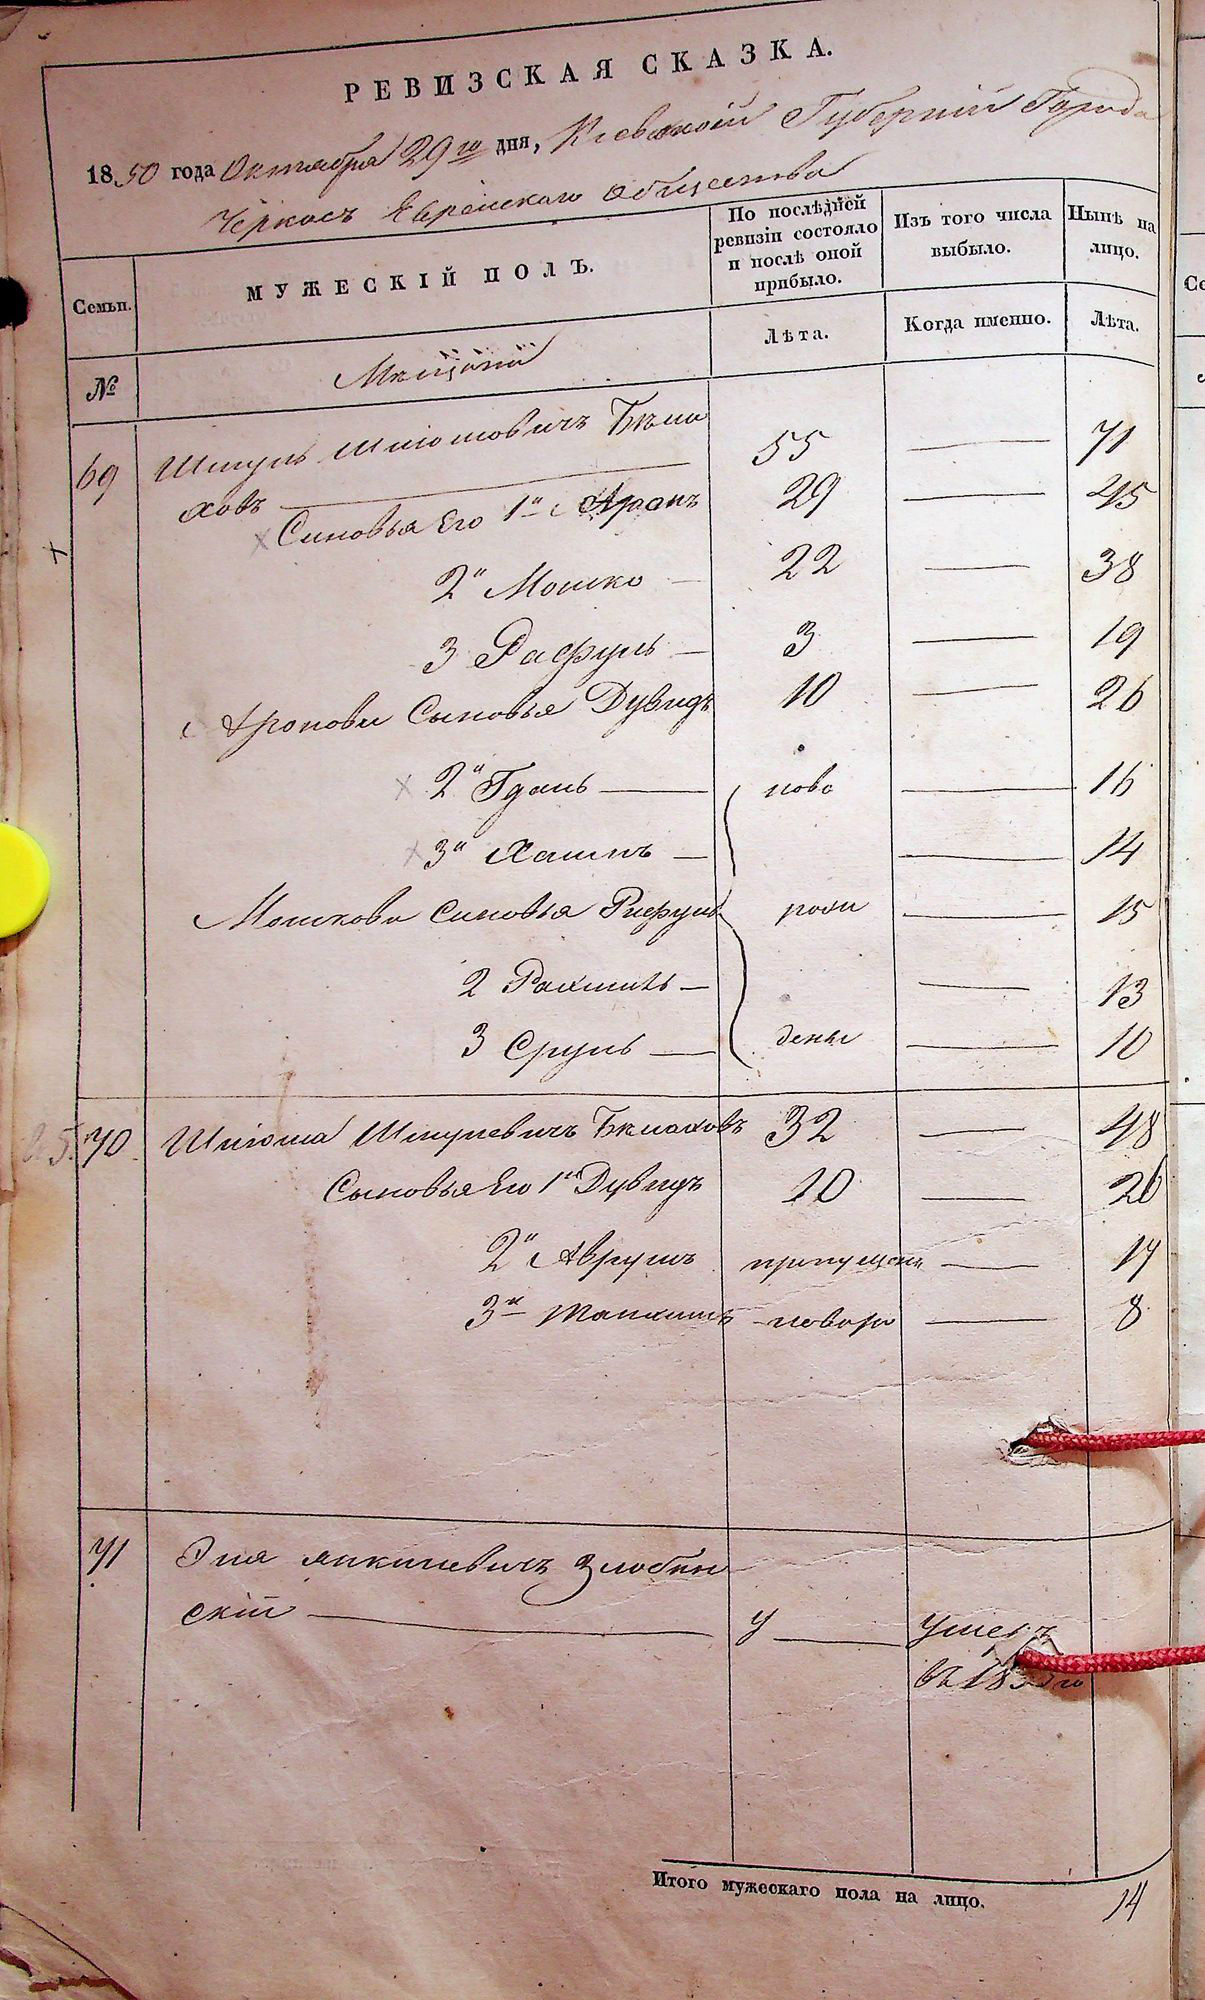 РЕВИЗСКАЯ СКАЗКА.
1850 года Октября 29го дня, Кіевской Губерніи Города
Черкасъ Еврейскаго Общества
Семьи.
МУЖЕСКІЙ ПОЛЪ.
По послѣдней ревизіи состояло и послѣ оной прибыло.
Изъ того числа выбыло.
Нынѣ на лицо.
№
Лѣта.
Когда именно.
Лѣта.
Мещане
69 Шмуль Шліомовичъ 55 — 71
ховъ
Синовья Его 1й Аронъ 29 — 45
2й Мошко — 22 — 38
3 Расфуль — 3 — 19
Аронови Сыновья Дувидъ 10 — 26
2й Гдаль — ново — 16
3й Хаимъ — — 14
Мошкови Синовья Рафуль рож — 15
2 — — 13
3 Сруль — дены — 10
70 Шліома Шмулевичъ 32 — 48
Сыновья Его 1й Дувидъ 10 — 26
2й Аврумъ пропущенъ — 17
3й новоро — 8
71 Эля Янкилевичъ Злобин
скій — у — умеръ
въ 18
Итого мужескаго пола на лицо. 14